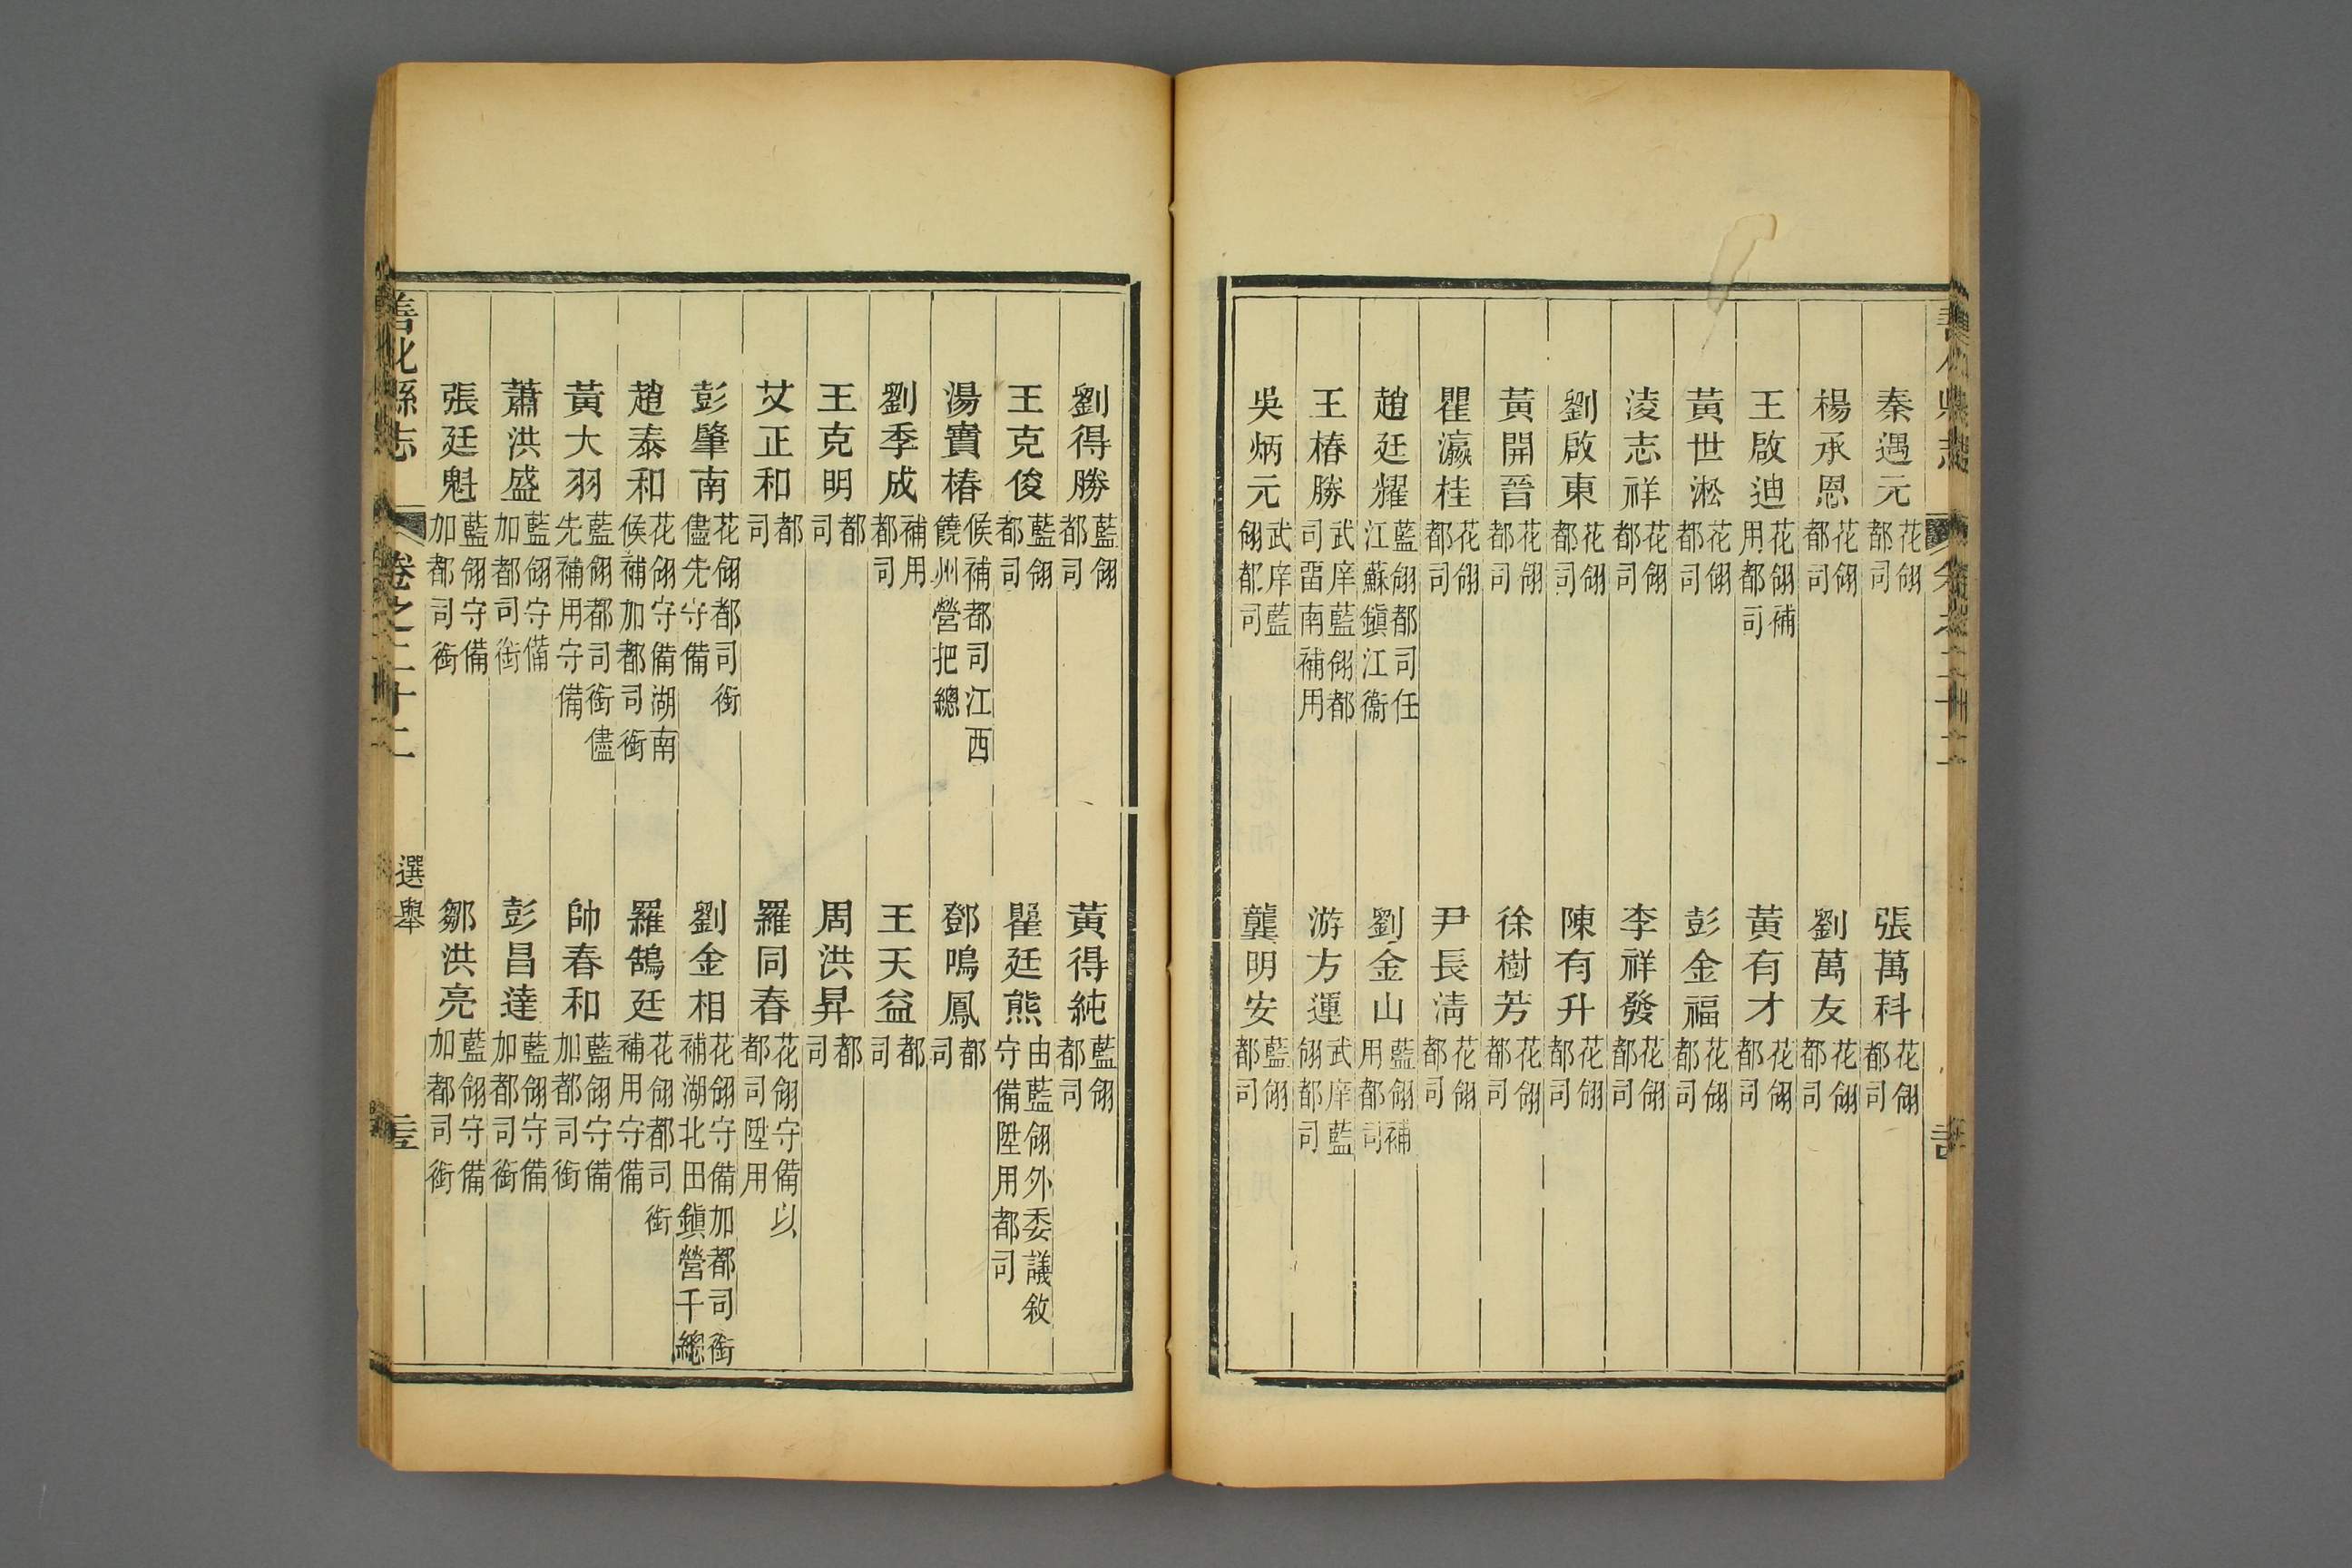 秦遇元花翎都司　張萬科花翎都司
楊承恩花翎都司　劉萬友花翎都司
王啟迪花翎補用都司　黃有才花翎都司
黃世淞花翎都司　彭金福花翎都司
淩志祥花翎都司　李祥發花翎都司
劉啟東花翎都司　陳有升花翎都司
黃開晉花翎都司　徐樹芳花翎都司
瞿瀛桂花翎都司　尹長淸花翎都司
趙廷耀藍翎都司任江蘇鎭江衞　劉金山藍翎補用都司
王椿勝武庠藍翎都司畱南補用　游方運武庠藍翎都司
吳炳元武庠藍翎都司　龔明安藍翎都司
劉得勝藍翎都司　黃得純藍翎都司
王克俊藍翎都司　瞿廷熊由藍翎外委議敘守備陞用都司
湯實椿候補都司江西饒州營把總　鄧鳴鳳都司
劉季成補用都司　王天益都司
王克明都司　周洪昇都司
艾正和都司　羅同春花翎守備以都司陞用
彭肇南花翎都司銜儘先守備　劉金相花翎守備加都司銜補湖北田鎭營千總
趙泰和花翎守備湖南候補加都司銜　羅鵠廷花翎都司銜補用守備
黃大羽藍翎都司銜儘先補用守備　帥春和藍翎守備加都司銜
蕭洪盛藍翎守備加都司銜　彭昌達藍翎守備加都司銜
張廷魁藍翎守備加都司銜　鄒洪亮藍翎守備加都司銜
善化縣志　卷之二十二　選舉